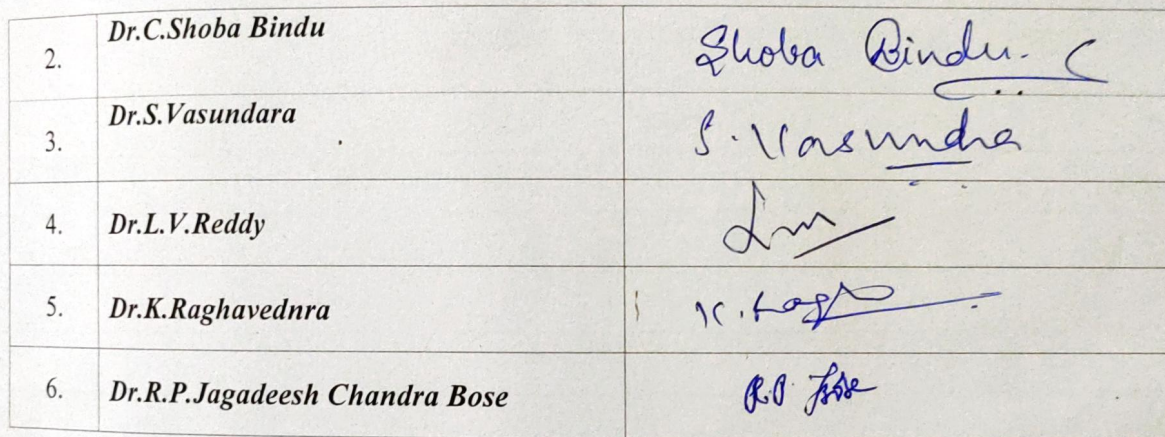 2. Dr.C.Shoba Bindu Shoba Bindu. C
3. Dr.S.Vasundara S. Vasundra
4. Dr.L.V.Reddy
5. Dr.K.Raghavednra K.
6. Dr.R.P.Jagadeesh Chandra Bose R.P